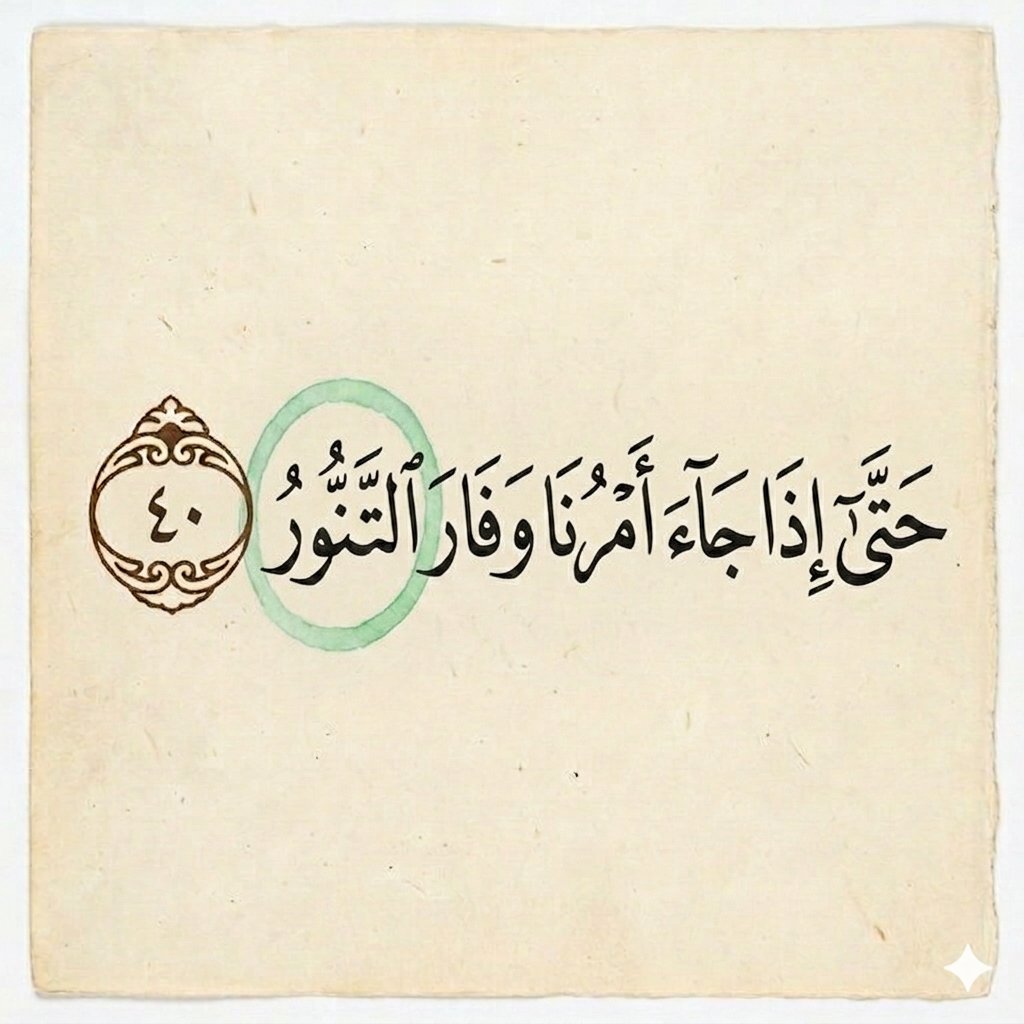 حَتَّىٰٓ إِذَا جَآءَ أَمْرُنَا وَفَارَ ٱلتَّنُّورُ ٤٠